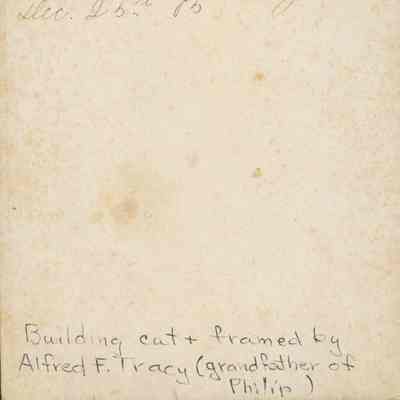 Dec. 25th 85
Building cut + framed by
Alfred F. Tracy (grandfather of
Philip)